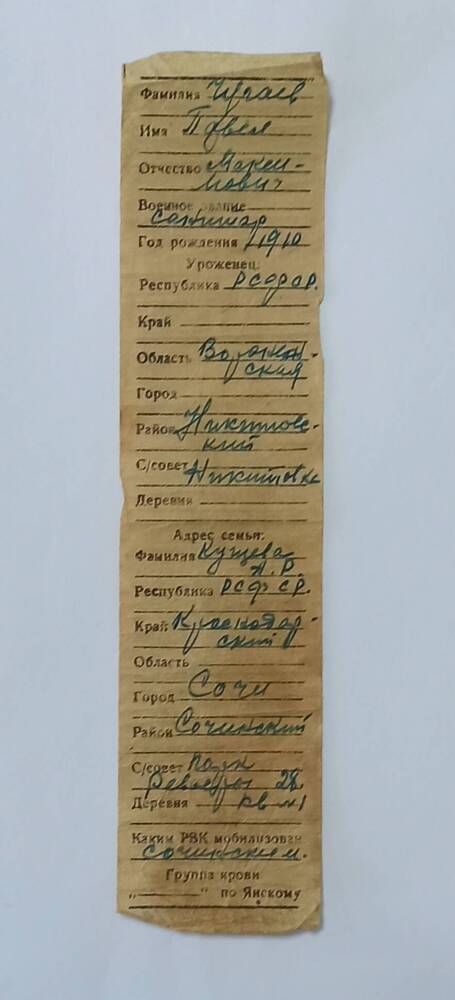 Фамилия Чугаев
Имя Павел
Отчество Макси-
мович
Военное звание
санитар
Год рождения 1910
Уроженец:
Республика РСФСР.
Край
Область Воронеж-
ская
Город
Район Никитовс-
кий
С/совет Никитовка
Деревня
Адрес семьи:
Фамилия Кущева
А.Р.
Республика РСФСР.
Край Краснодар-
ский
Область
Город Сочи
Район Сочинский
С/совет
28
Деревня кв №1
Каким РВК мобилизован
Сочинским.
Группа крови
„ “ по Янскому